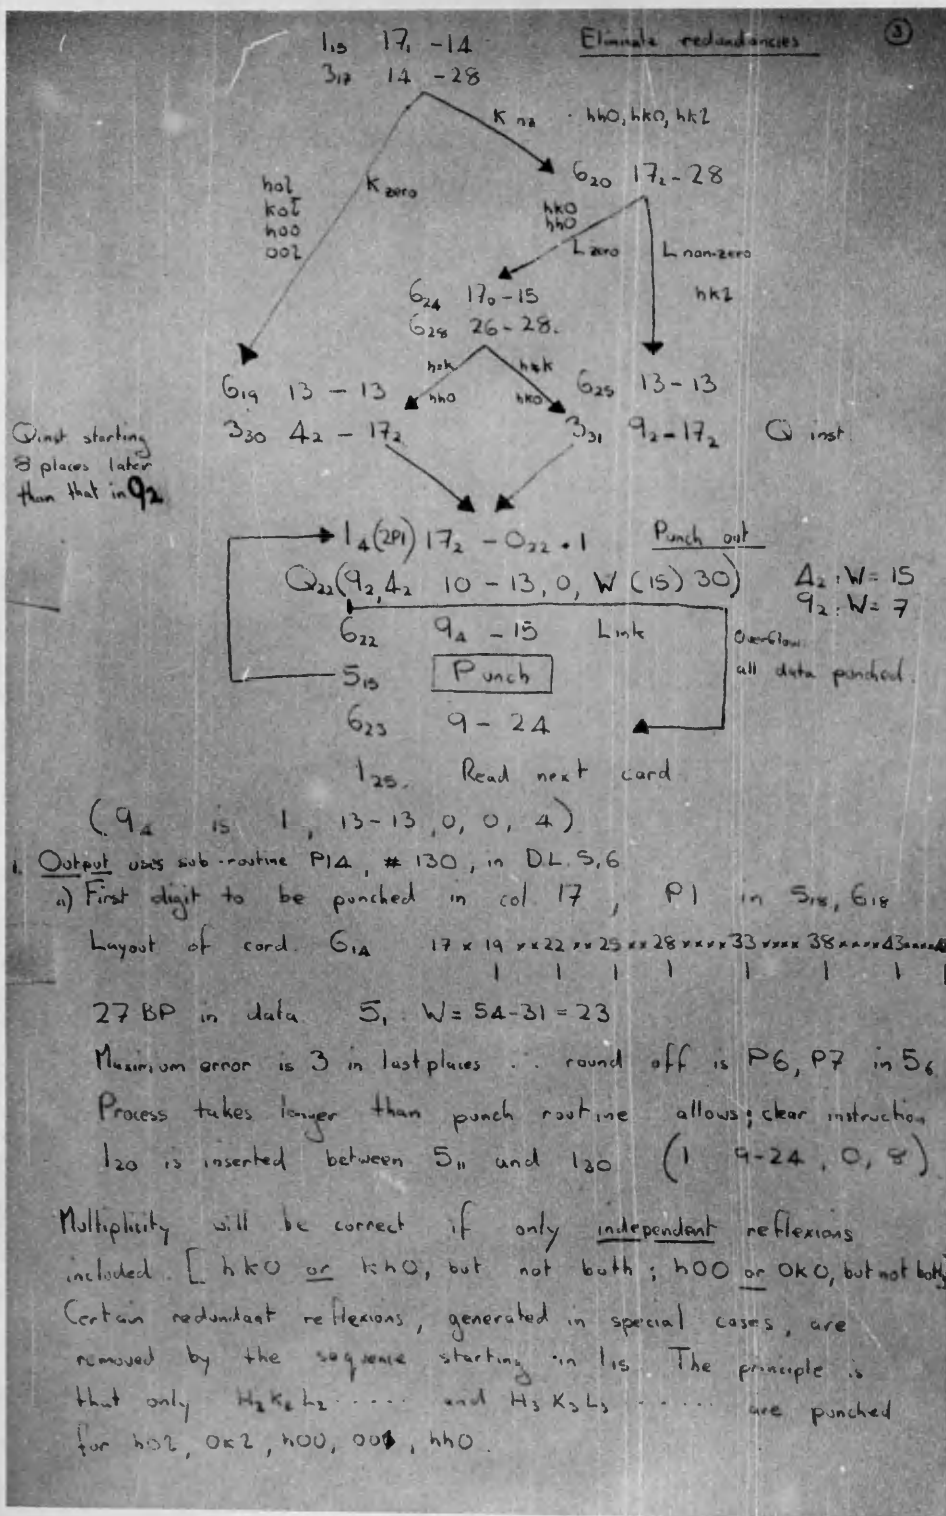 1₁₅ 17₁ -14 Eliminate redundancies ③
3₁₇ 14 -28
K nz · hh0, hk0, hkl
6₂₀ 17₂ - 28
h0l K zero
k0l̄
h00
00l
hk0
hh0
L zero L non-zero
hkl
6₂₄ 17₀ - 15
6₂₈ 26 - 28.
h=k h≠k
hh0 hk0
6₁₉ 13 - 13 6₂₅ 13 - 13
3₃₀ 4₂ - 17₂ 3₃₁ 9₂ - 17₂ Q inst.
Q inst starting
8 places later
than that in 9₂
1₄ (2P1) 17₂ - 0₂₂ + 1 Punch out
Q₂₂ (9₂, 4₂ 10 - 13, 0, W (15) 30) 4₂ : W = 15
9₂ : W = 7
6₂₂ 9₄ - 15 Link
Overflow.
5₁₅ Punch all data punched.
6₂₃ 9 - 24
1₂₅. Read next card
(9₄ is 1, 13-13, 0, 0, 4)
1. Output uses sub-routine P14, # 130, in D.L. 5,6
a) First digit to be punched in col 17, P1 in 5₁₈, 6₁₈
Layout of card. 6₁₄ 17 x 19 xx 22 xx 25 xx 28 xxxx 33 xxxx 38 xxxx 43 xxxx
1 1 1 1 1 1 1 1
27 BP in data 5₁. W = 54-31 = 23
Maximum error is 3 in last places ∴ round off is P6, P7 in 5₆
Process takes longer than punch routine allows; clear instruction
1₂₀ is inserted between 5₁₁ and 1₃₀ (1 9-24, 0, 8)
Multiplicity will be correct if only independent reflexions
included. [hk0 or kh0, but not both; h00 or 0k0, but not both]
Certain redundant reflexions, generated in special cases, are
removed by the sequence starting in 1₁₅ The principle is
that only H₂K₂L₂ ····· and H₃K₃L₃ ······ are punched
for h0l, 0kl, h00, 00l, hh0.